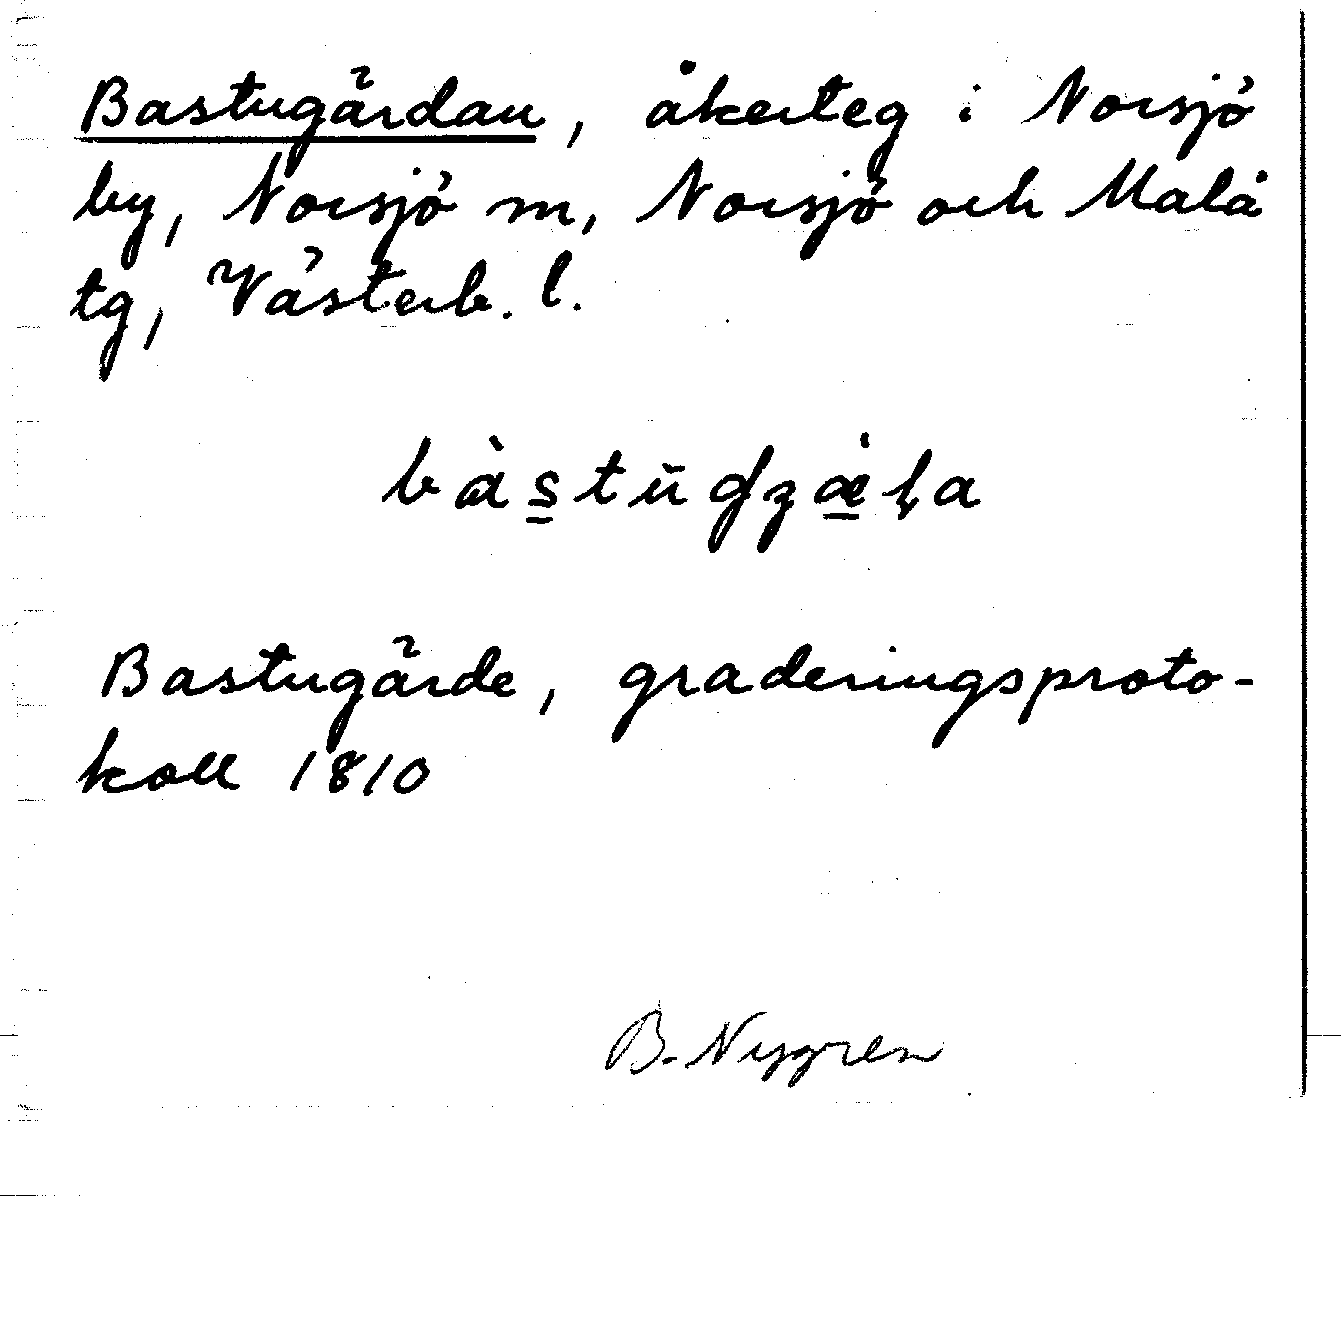 Bastugärdan, åkerteg i Norsjö
by, Norsjö m, Norsjö och Malå
tg, Västerb. l.
Bastugärde, graderingsproto-
koll 1810
B. Nygren